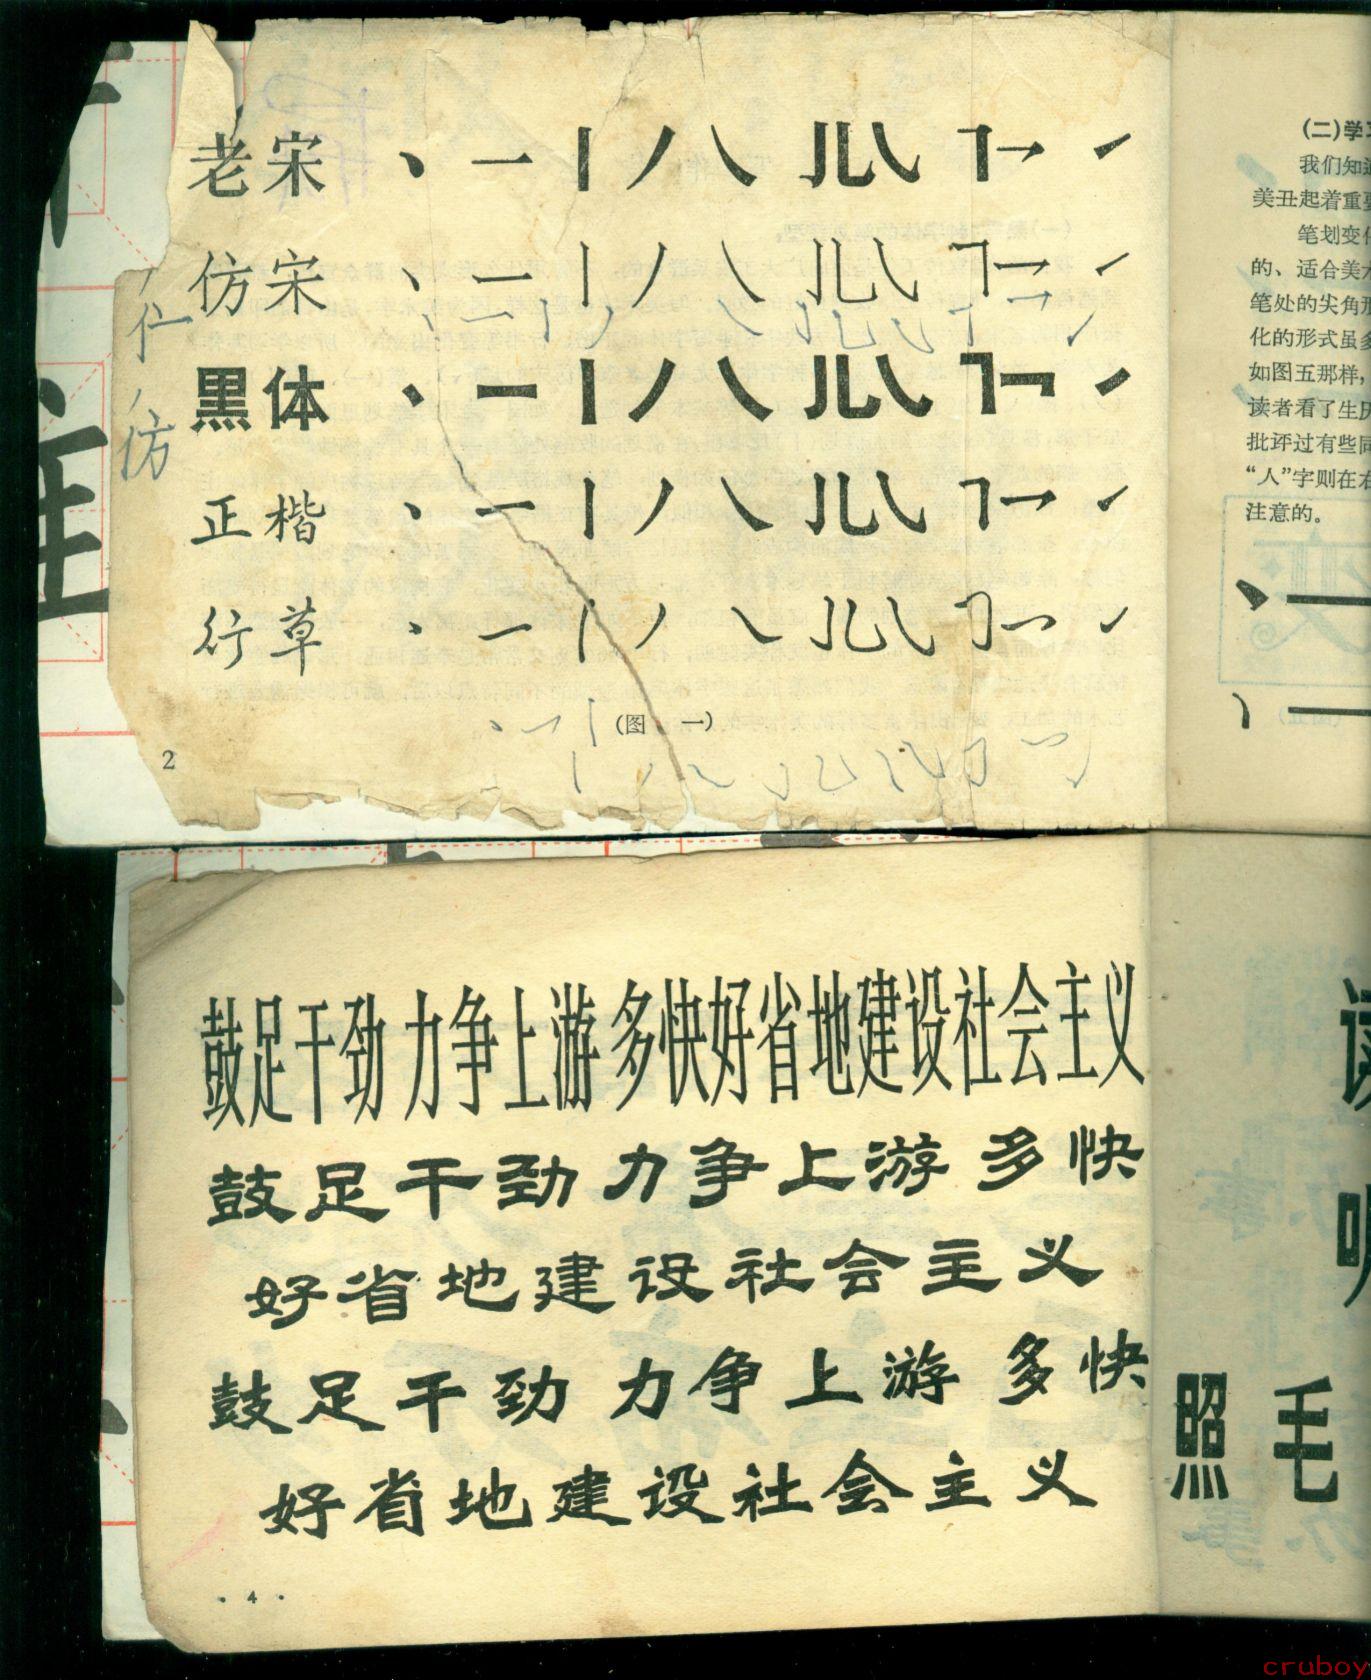 老宋
仿宋
黑体
正楷
行草
(图 一)
2
仿
(二)学
我们知道
美丑起着重要
笔划变
的、适合美
笔处的尖角
化的形式虽多
如图五那样,
读者看了生厌
批评过有些同
“人”字则在右
注意的。
鼓足干劲 力争上游 多快好省地建设社会主义
鼓足干劲 力争上游 多快
好省地建设社会主义
鼓足干劲 力争上游 多快
好省地建设社会主义
· 4 ·
读
照毛
cruboy